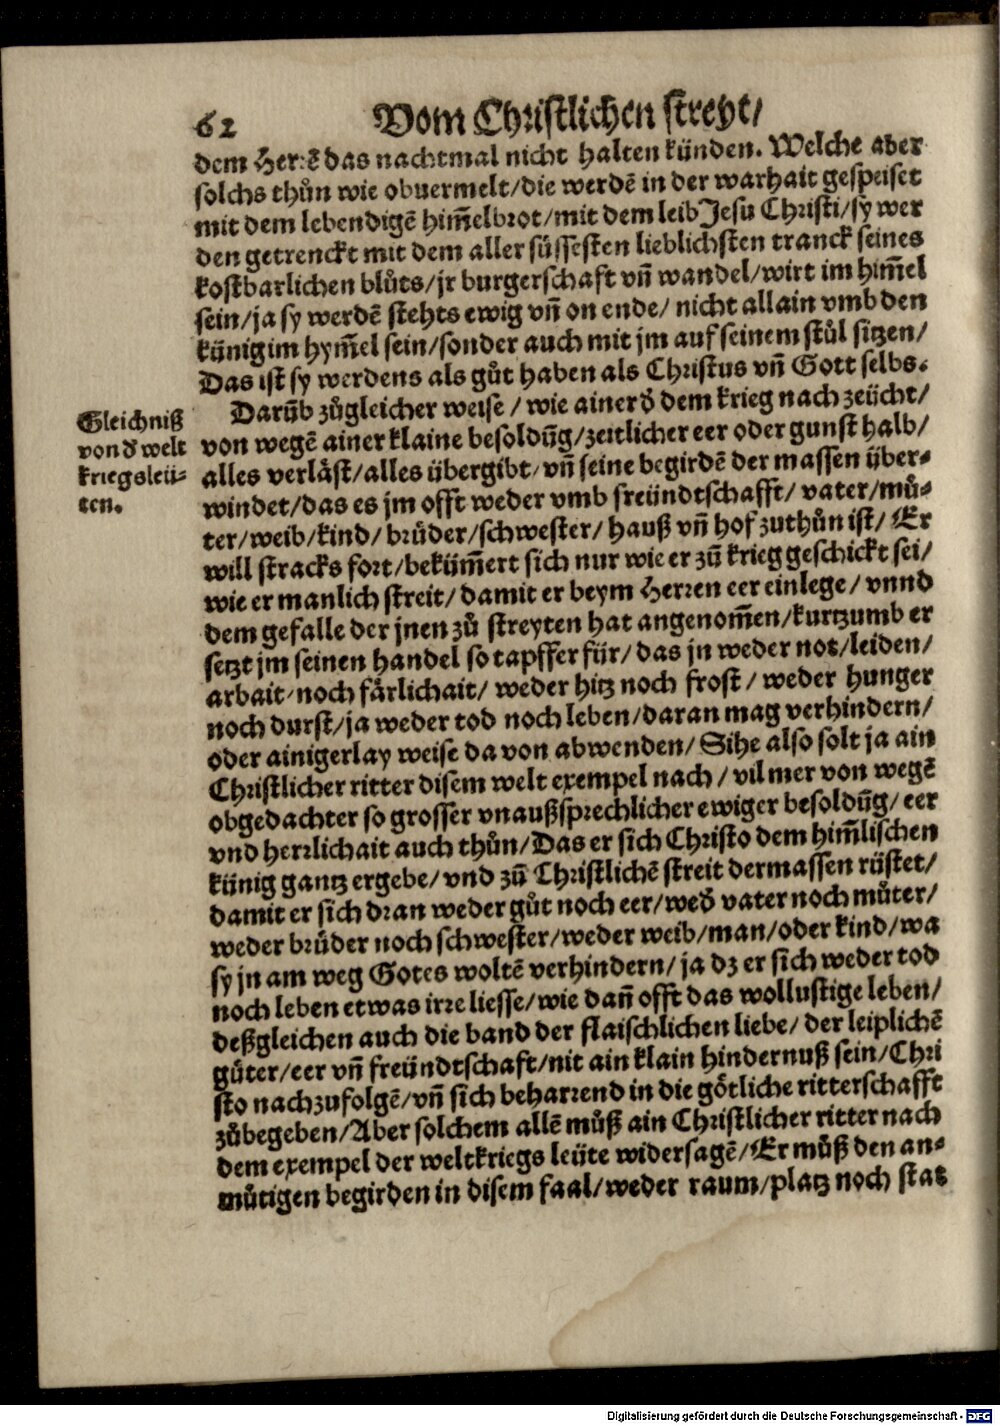 62 Vom Christlichen streyt/
dem Herrẽ das nachtmal nicht halten künden. Welche aber
solchs thůn wie obuermelt/die werdẽ in der warhait gespeiset
mit dem lebendigẽ him̃elbrot/mit dem leib Jesu Christi/sy wer
den getrenckt mit dem aller süssesten lieblichsten tranck seines
kostbarlichen blůts/jr burgerschaft vñ wandel/wirt im him̃el
sein/ja sy werdẽ stehts ewig vñ on ende/ nicht allain vmb den
künig im hym̃el sein/sonder auch mit jm auf seinem stůl sitzen/
Das ist sy werdens als gůt haben als Christus vñ Gott selbs.
Gleichniß
von d̕ welt
kriegsleü-
ten.
Darũb zůgleicher weise / wie ainer d̕ dem krieg nach zeücht/
von wegẽ ainer klaine besoldũg/zeitlicher eer oder gunst halb/
alles verlåst/alles übergibt/vñ seine begirdẽ der massen über-
windet/das es jm offt weder vmb freündtschafft/ vater/mů-
ter/weib/kind/ brůder/schwester/ hauß vñ hof zuthůn ist/ Er
will stracks fort/beküm̃ert sich nur wie er zů krieg geschickt sei/
wie er manlich streit/ damit er beym Herren eer einlege/ vnnd
dem gefalle der jnen zů streyten hat angenom̃en/kurtzumb er
setzt jm seinen handel so tapffer für/ das jn weder not/leiden/
arbait/noch fårlichait/ weder hitz noch frost/ weder hunger
noch durst/ja weder tod noch leben/daran mag verhindern/
oder ainigerlay weise da von abwenden/ Sihe also solt ja ain
Christlicher ritter disem welt exempel nach / vil mer von wegẽ
obgedachter so grosser vnaußsprechlicher ewiger besoldũg/ eer
vnd herrlichait auch thůn/Das er sich Christo dem him̃lischen
künig gantz ergebe/vnd zů Christlichẽ streit dermassen rüstet/
damit er sich dran weder gůt noch eer/wed̕ vater noch můter/
weder brůder noch schwester/weder weib/man/oder kind/wa
sy jn am weg Gotes woltẽ verhindern/ ja dz er sich weder tod
noch leben etwas irre liesse/wie dañ offt das wollustige leben/
deßgleichen auch die band der flaischlichen liebe/ der leiplichẽ
gůter/eer vñ freündtschaft/nit ain klain hindernuß sein/Chri
sto nachzufolgẽ/vñ sich beharrend in die götliche ritterschafft
zůbegeben/Aber solchem allẽ můß ain Christlicher ritter nach
dem exempel der weltkriegs leüte widersagẽ/Er můß den an-
můtigen begirden in disem faal/weder raum/platz noch stat
Digitalisierung gefördert durch die Deutsche Forschungsgemeinschaft - DFG